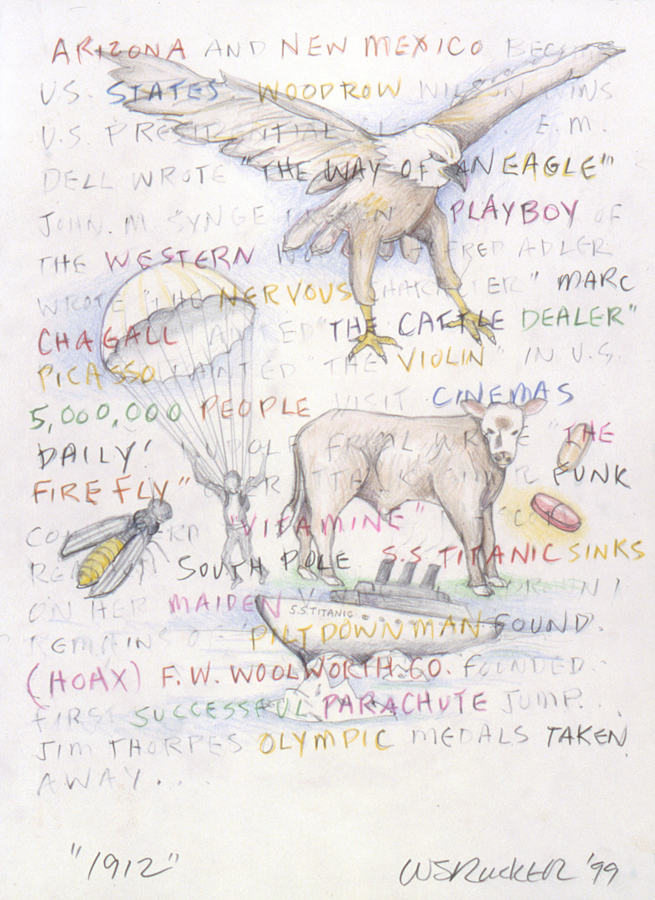 ARIZONA AND NEW MEXICO BECOME
U.S. STATES. WOODROW WILSON WINS
U.S. PRESIDENTIAL E.M.
DELL WROTE "THE WAY OF AN EAGLE"
JOHN. M. SYNGE PLAYBOY OF
THE WESTERN ALFRED ADLER
WROTE "THE NERVOUS CHARACTER" MARC
CHAGALL PAINTED "THE CATTLE DEALER"
PICASSO PAINTED "THE VIOLIN" IN U.S.
5,000,000 PEOPLE VISIT CINEMAS
DAILY! WROTE "THE
FIREFLY" FUNK
"VITAMINE"
SOUTH POLE S.S. TITANIC SINKS
ON HER MAIDEN
S.S. TITANIC
REMAINS OF PILTDOWN MAN FOUND.
(HOAX) F.W. WOOLWORTH CO. FOUNDED.
FIRST SUCCESSFUL PARACHUTE JUMP...
JIM THORPES OLYMPIC MEDALS TAKEN
AWAY...
"1912" WSRUCKER '99